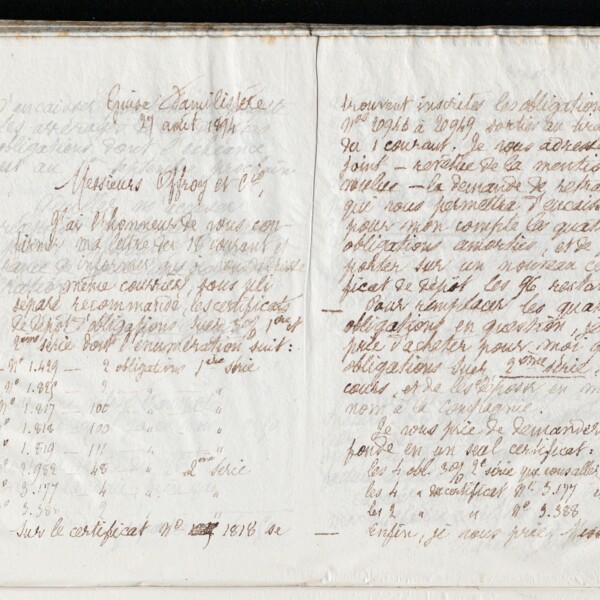 27 août 1894
Messieurs Offroy et Cie,
J'ai l'honneur de vous con-
firmer ma lettre du 18 courant et
de vous
même courrier, sous pli
séparé recommandé, les certificats
de dépôt d'obligations 1ère et
2ème série dont l'énumération suit:
- No 1.429 — 2 obligations 1ère série
- No — 2 " "
No 1.817 — 100 " "
No 1.818 — 100 " "
1.819 — 111 " "
2.988 — 48 " 2ème série
3.177 — 4 " "
3.388 — 2 " "
sur le certificat No 1818 se
trouvent inscrites les obligations
Nos 20946 à 20949 sorties au
du 1 courant. Je vous adresse
joint — revêtue de la mention
voulue — la demande de retra
qui vous permettra d'encais
pour mon compte les quat
obligations amorties, et de
porter sur un nouveau c
ficat de dépôt les 96 restan
— Pour remplacer les quat
obligations en question, je
prie d'acheter pour moi
obligations 2ème série,
cours, et de les déposer en m
nom à la compagnie.
Je vous prie de demander
en un seul certificat:
les 4 obl. 3% 2e série que vous allez
les 4 " du certificat No 3.177
les 2 " " No 3.388
— Enfin, je vous prie, Mess